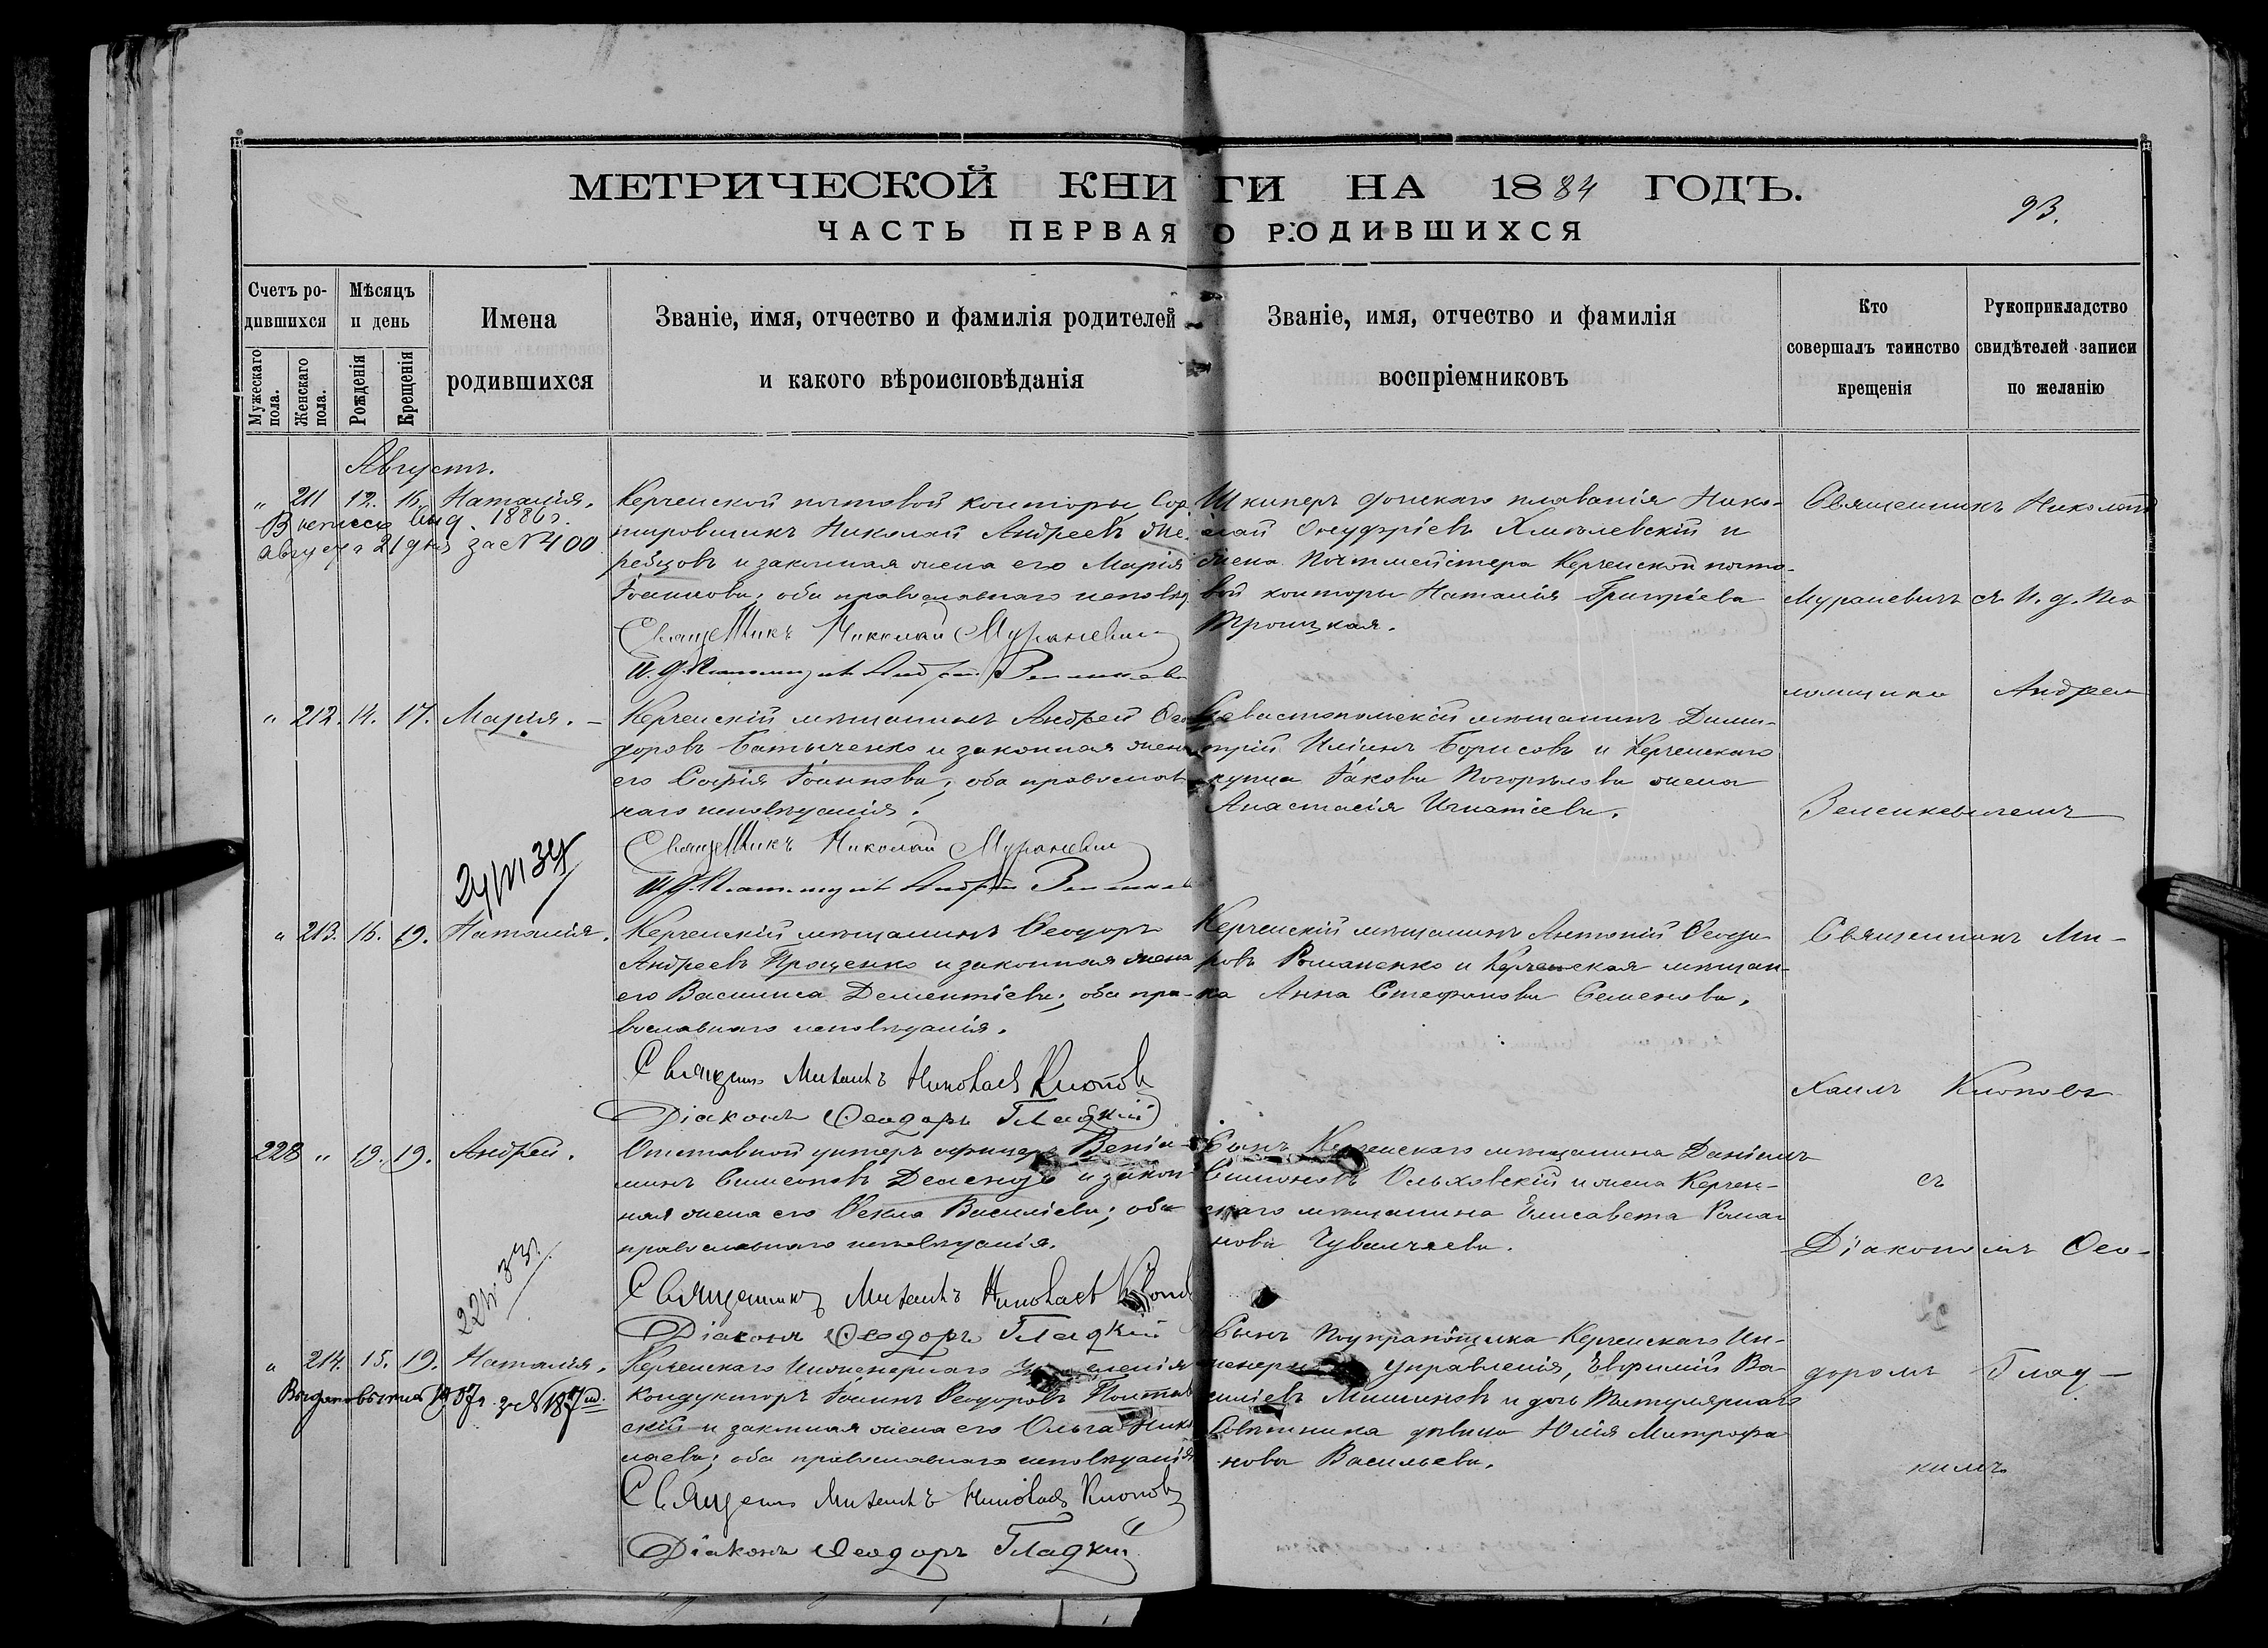 МЕТРИЧЕСКОЙ КНИГИ НА 1884 ГОДЪ.
93.
ЧАСТЬ ПЕРВАЯ О РОДИВШИХСЯ
Счетъ родившихся
Мужескаго пола.
Женскаго пола.
Мѣсяцъ и день
Рожденія
Крещенія
Имена
родившихся
Званіе, имя, отчество и фамилія родителей
и какого вѣроисповѣданія
Званіе, имя, отчество и фамилія
воспріемниковъ
Кто
совершалъ таинство
крещенія
Рукоприкладство
свидѣтелей записи
по желанію
Августъ.
" 211 12. 16. Наталія.
1886 г.
августа 21 дня за № 400
Керченской почтовой конторы Сор
тировщикъ Николай Андреевъ Же-
ребцовъ и законная жена его Марія
Іоаннова; оба православнаго исповѣд.
Священникъ Николай Мураневичъ
И. д. Псаломщика Андрей
Шкиперъ донскаго плаванія Нико-
лай Онуфріевъ Хмѣлевскій и
жена Почтмейстера Керченской почто-
вой конторы Наталія Григоріева
Троицкая.
Священникъ Николай
Мураневичъ съ И. д. Пса
ломщика Андрея
Зеленкевичемъ
" 212. 14. 17. Марія.
Керченскій мѣщанинъ Андрей Ѳео
доровъ Батыченко и законная жена
его Софія Іоаннова; оба православ
наго исповѣданія.
Священникъ Николай Мураневичъ
И. д. Псаломщика Андрей
Севастопольскій мѣщанинъ Дими-
трій Иліинъ Борисовъ и Керченскаго
купца Іакова Погорѣлова жена
Анастасія Игнатіева.
" 213. 16. 19. Наталія.
Керченскій мѣщанинъ Ѳеодоръ
Андреевъ Проценко и законная жена
его Василиса Дементіева; оба пра-
вославнаго исповѣданія.
Священникъ Михаилъ Николаевъ Клоповъ
Діаконъ Ѳеодоръ Гладкій
Керченскій мѣщанинъ Антоній Ѳеодо
ровъ Романенко и Керченская мѣщан-
ка Анна Стефанова Семенова.
Священникъ Ми-
хаилъ Клоповъ
съ
Діакономъ Ѳео-
доромъ Глад-
кимъ
228 " 19. 19. Андрей.
Отставной унтеръ офицеръ Веніа-
минъ Симеоновъ и закон
ная жена его Ѳекла Василіева; оба
православнаго исповѣданія.
Священникъ Михаилъ Николаевъ Клоповъ
Діаконъ Ѳеодоръ Гладкій
Сынъ Керченскаго мѣщанина Даніилъ
Симоновъ Ольховскій и жена Керчен-
скаго мѣщанина Елисавета Рома
нова
" 214. 15. 19. Наталія.
1907 г. за № 187
Керченскаго Инженернаго Управленія
Кондукторъ Іоаннъ Ѳеодоровъ Полтав
скій и законная жена его Ольга Нико
лаева; оба православнаго исповѣданія
Священникъ Михаилъ Николаевъ Клоповъ
Діаконъ Ѳеодоръ Гладкій
Сынъ Подпрапорщика Керченскаго Ин-
женернаго Управленія, Евфимій Ва-
силіевъ и дочь Титулярнаго
Совѣтника дѣвица Юлія Митрофа
нова Васильева.